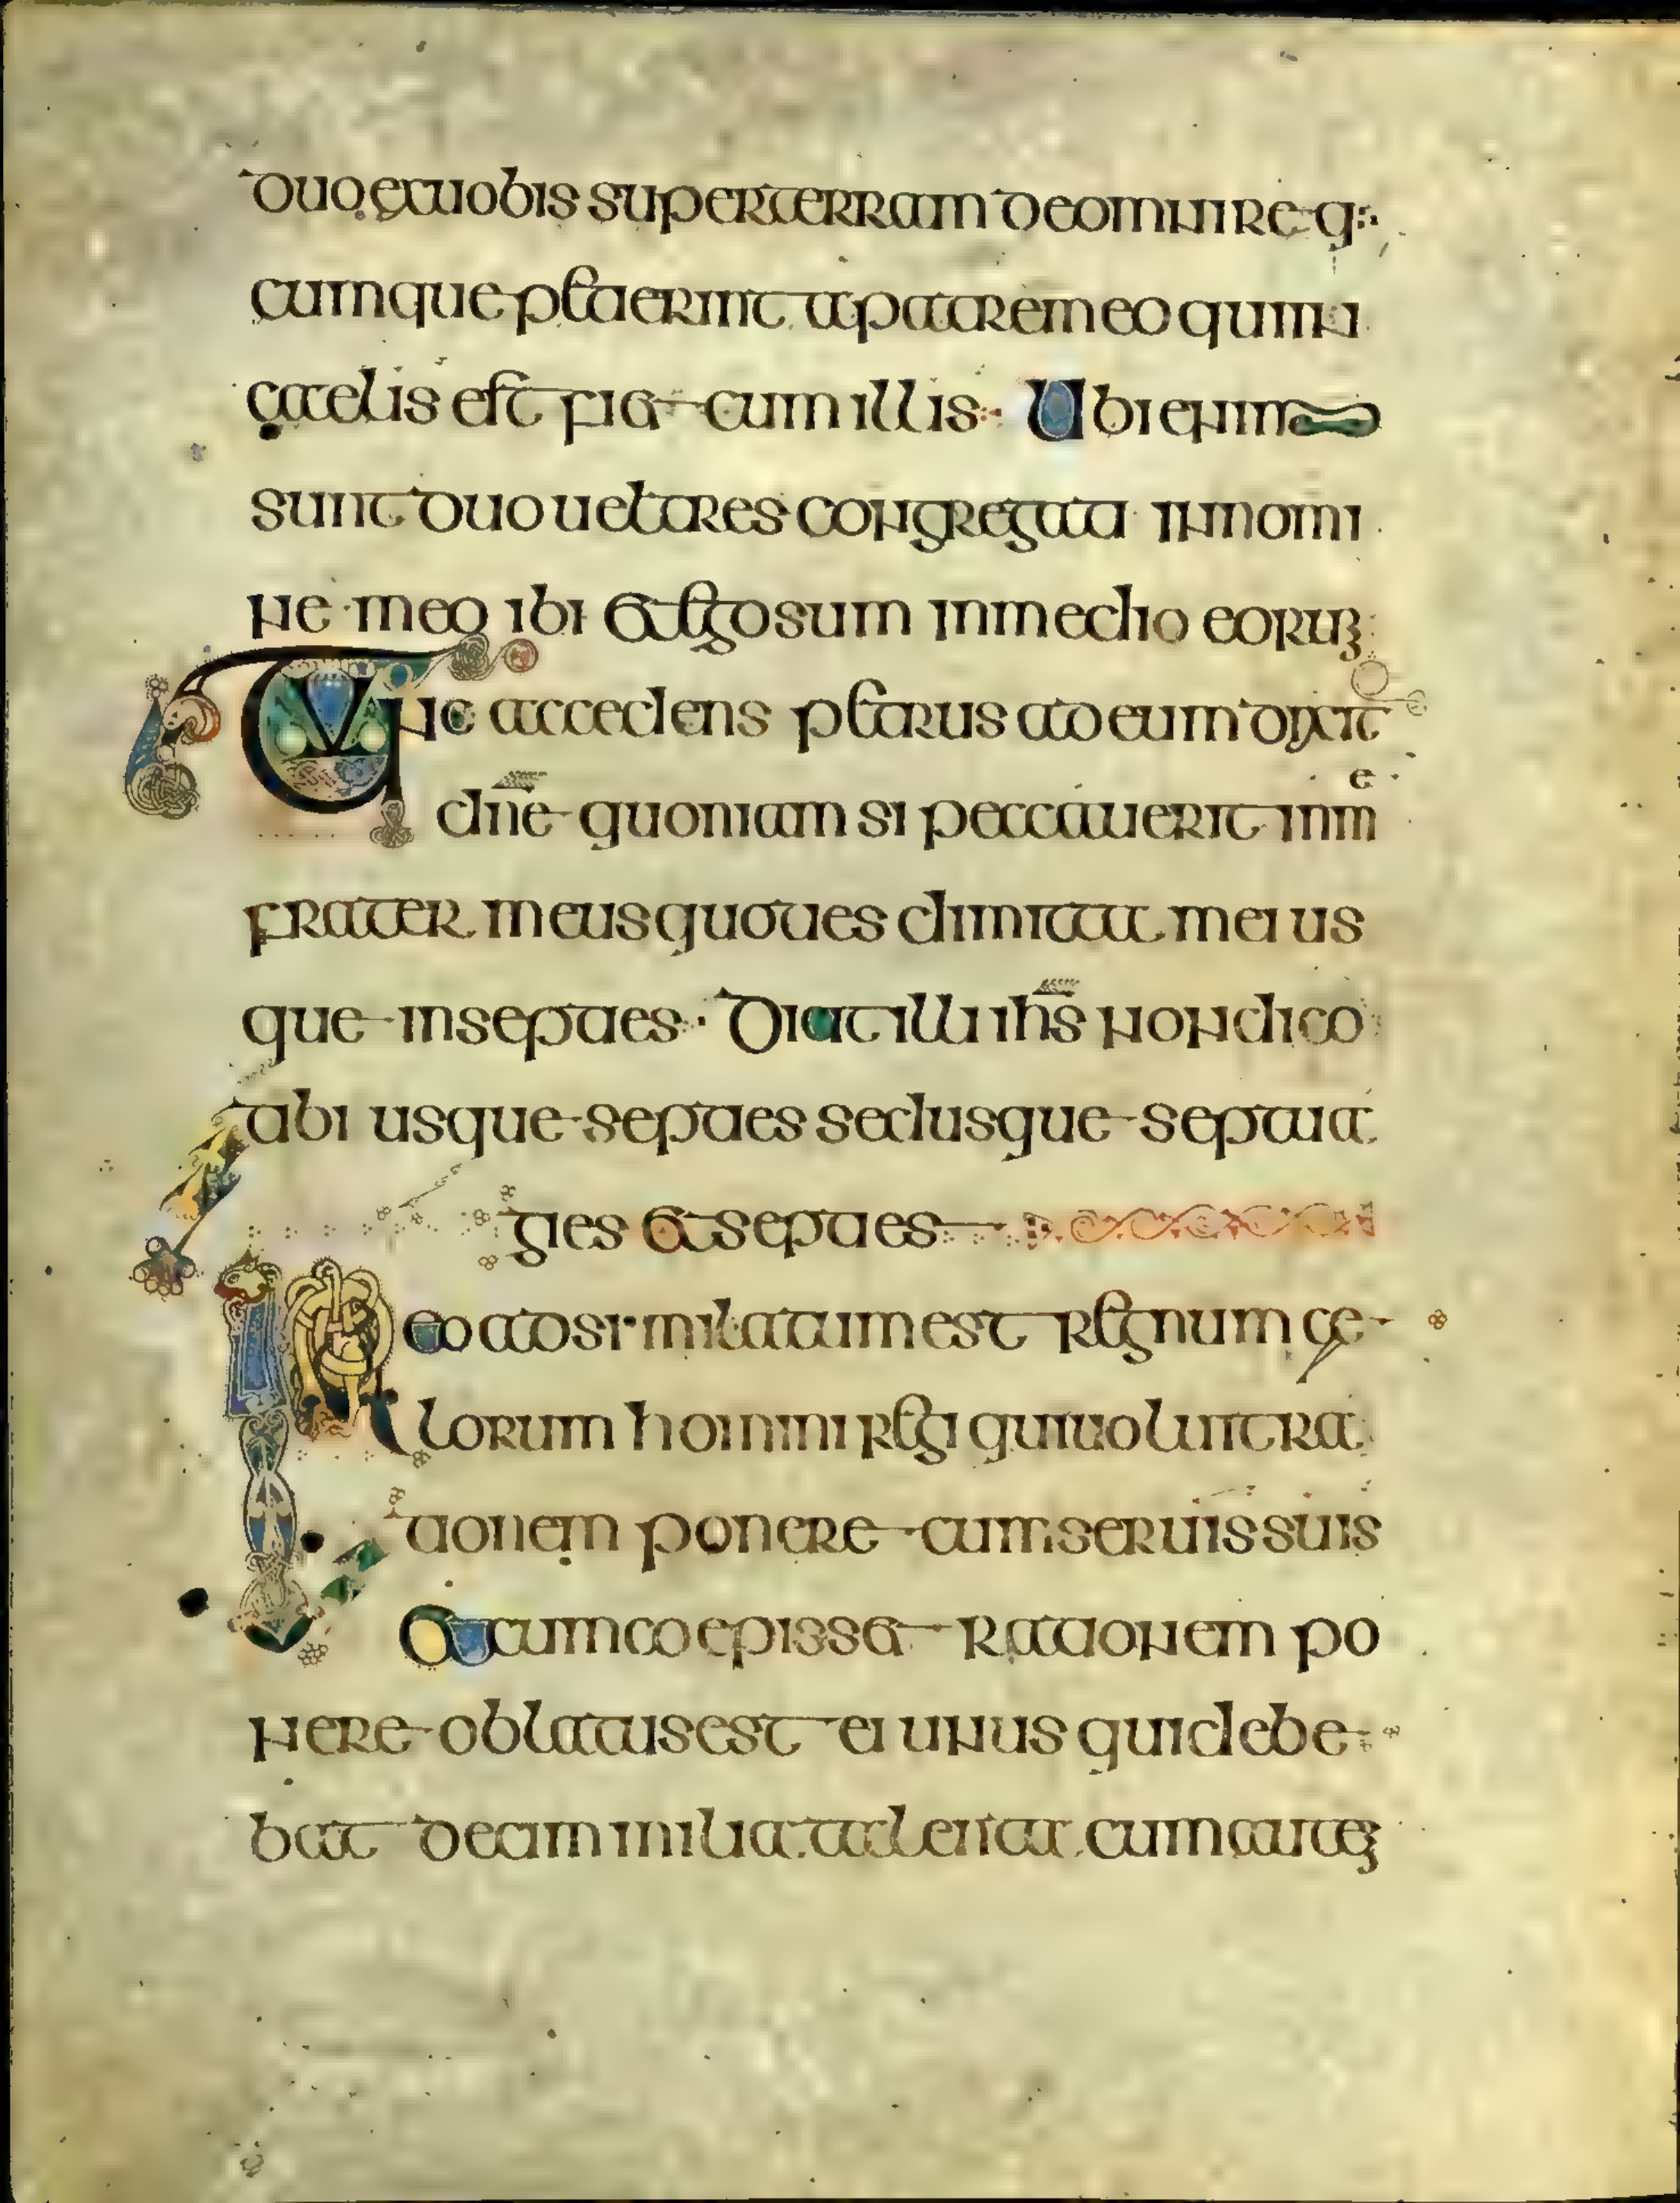 duo ex uobis super terram de omni re q:
cumque petierint a patre meo qui in
caelis est fiet cum illis · Ubi enim
sunt duo uel tres congregati in nomi
ne meo ibi et ego sum in medio eorum
Tunc accedens petrus ad eum dixit
dn̄e quoniam si peccauerit in me
frater meus quoties dimittam ei us
que in septies · Dicit illi ih̄s non dico
tibi usque septies sed usque septua
gies et septies
Ideo adsimilatum est regnum cae
lorum homini regi qui uoluit ra
tionem ponere cum seruis suis
Et cum coepisset rationem po
nere oblatus est ei unus qui debe
bat decim milia talenta cum autem